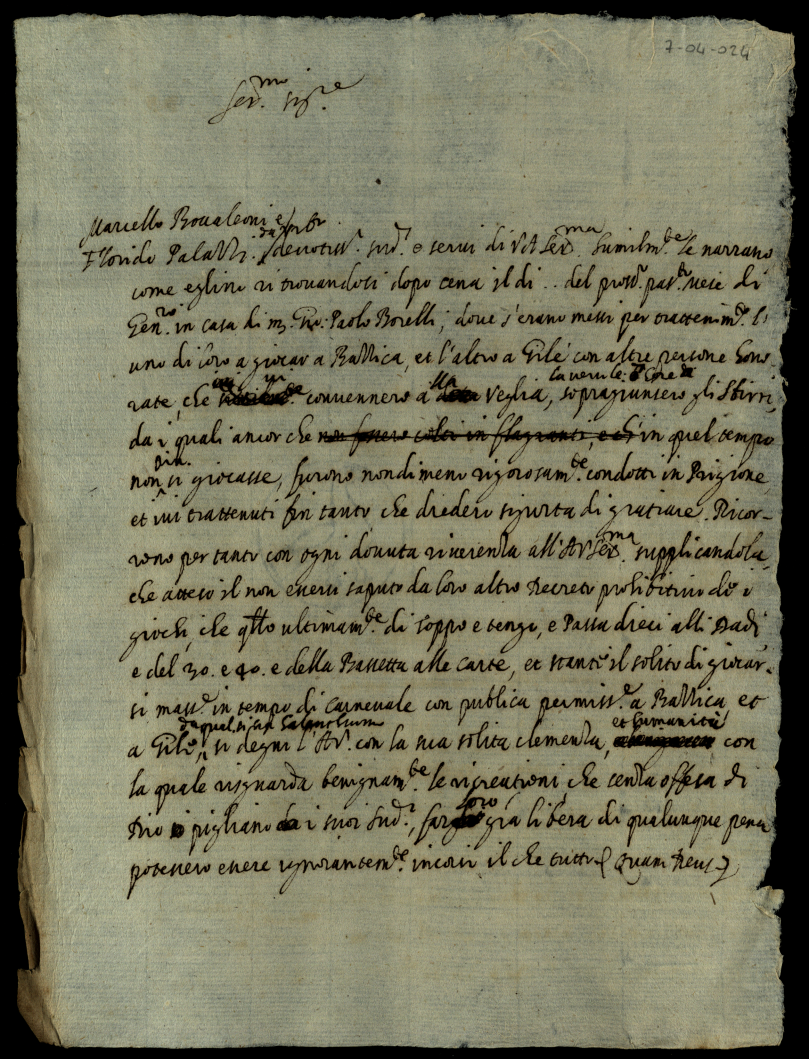 7-04-024
Ser.mo Sig.re
Marcello Boualeoni e
Florido Palazzi deuotiss.i sud.i e serui di V A Ser.ma humilm.te le narrano
come eglino ritrouandosi dopo cena il di .. del pross.o pas.to mese di
Gen.ro in casa di m. Gio: Paolo Borelli, doue s'erano messi per trattenim.o l'
uno di loro a giocar a Bazzica, et l'altro a Gilè con altre persone hono-
rate, che iui conuennero a Veglia, sopragiunsero gli Sbirri,
da i quali ancor che non fossero colti in flagranti, e ch' in quel tempo
non più si giocasse, furono nondimeno rigorosam.te condotti in Prigione,
et iui trattenuti fin tanto che diedero sigurtà di gratiare. Ricor-
rono per tanto con ogni douuta riuerenza all'AV Ser.ma supplicandola,
che atteso il non esersi saputo da loro altro Decreto prohibitiuo de i
giochi, che q.llo ultimam.te di soppo e tengo, e Passa dieci alli Dadi
e del 30. e 40. e della Bassetta alle carte, et stante il solito di giocar-
si mass.e in tempo di Carneuale con publica permiss.e a Bazzica et
a Gilè, si degni l'AV. con la sua solita clemenza, et humanità con
la quale risguarda benignam.te le ricreationi, che senza offesa di
Dio pigliano i suoi sud.i, far loro gratia libera di qualunque pena
potessero essere ignorantem.te incorsi il che tutto Quam Deus